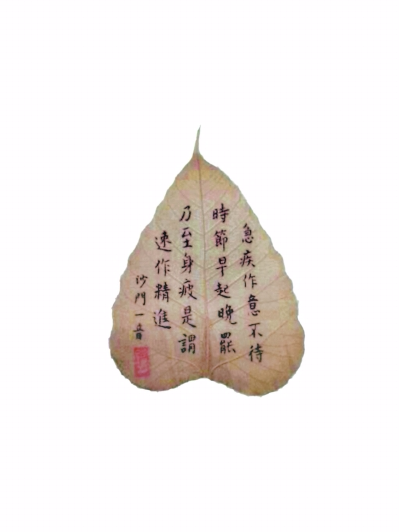 急疾作意不待
時節早起晚罷
乃至身疲是謂
速作精進
沙門一音